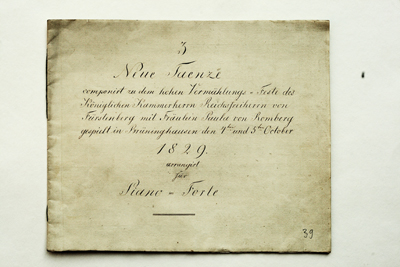 3
Neue Taenze
componirt zu dem hohen Vermählungs-Feste des
Königlichen Kammerherrn Reichsfreiherrn von
Fürstenberg mit Fräulein Paula von Romberg
gespielt in Brüninghausen den 4ten und 5ten October
1829.
arrangirt
für
Piano-Forte
39